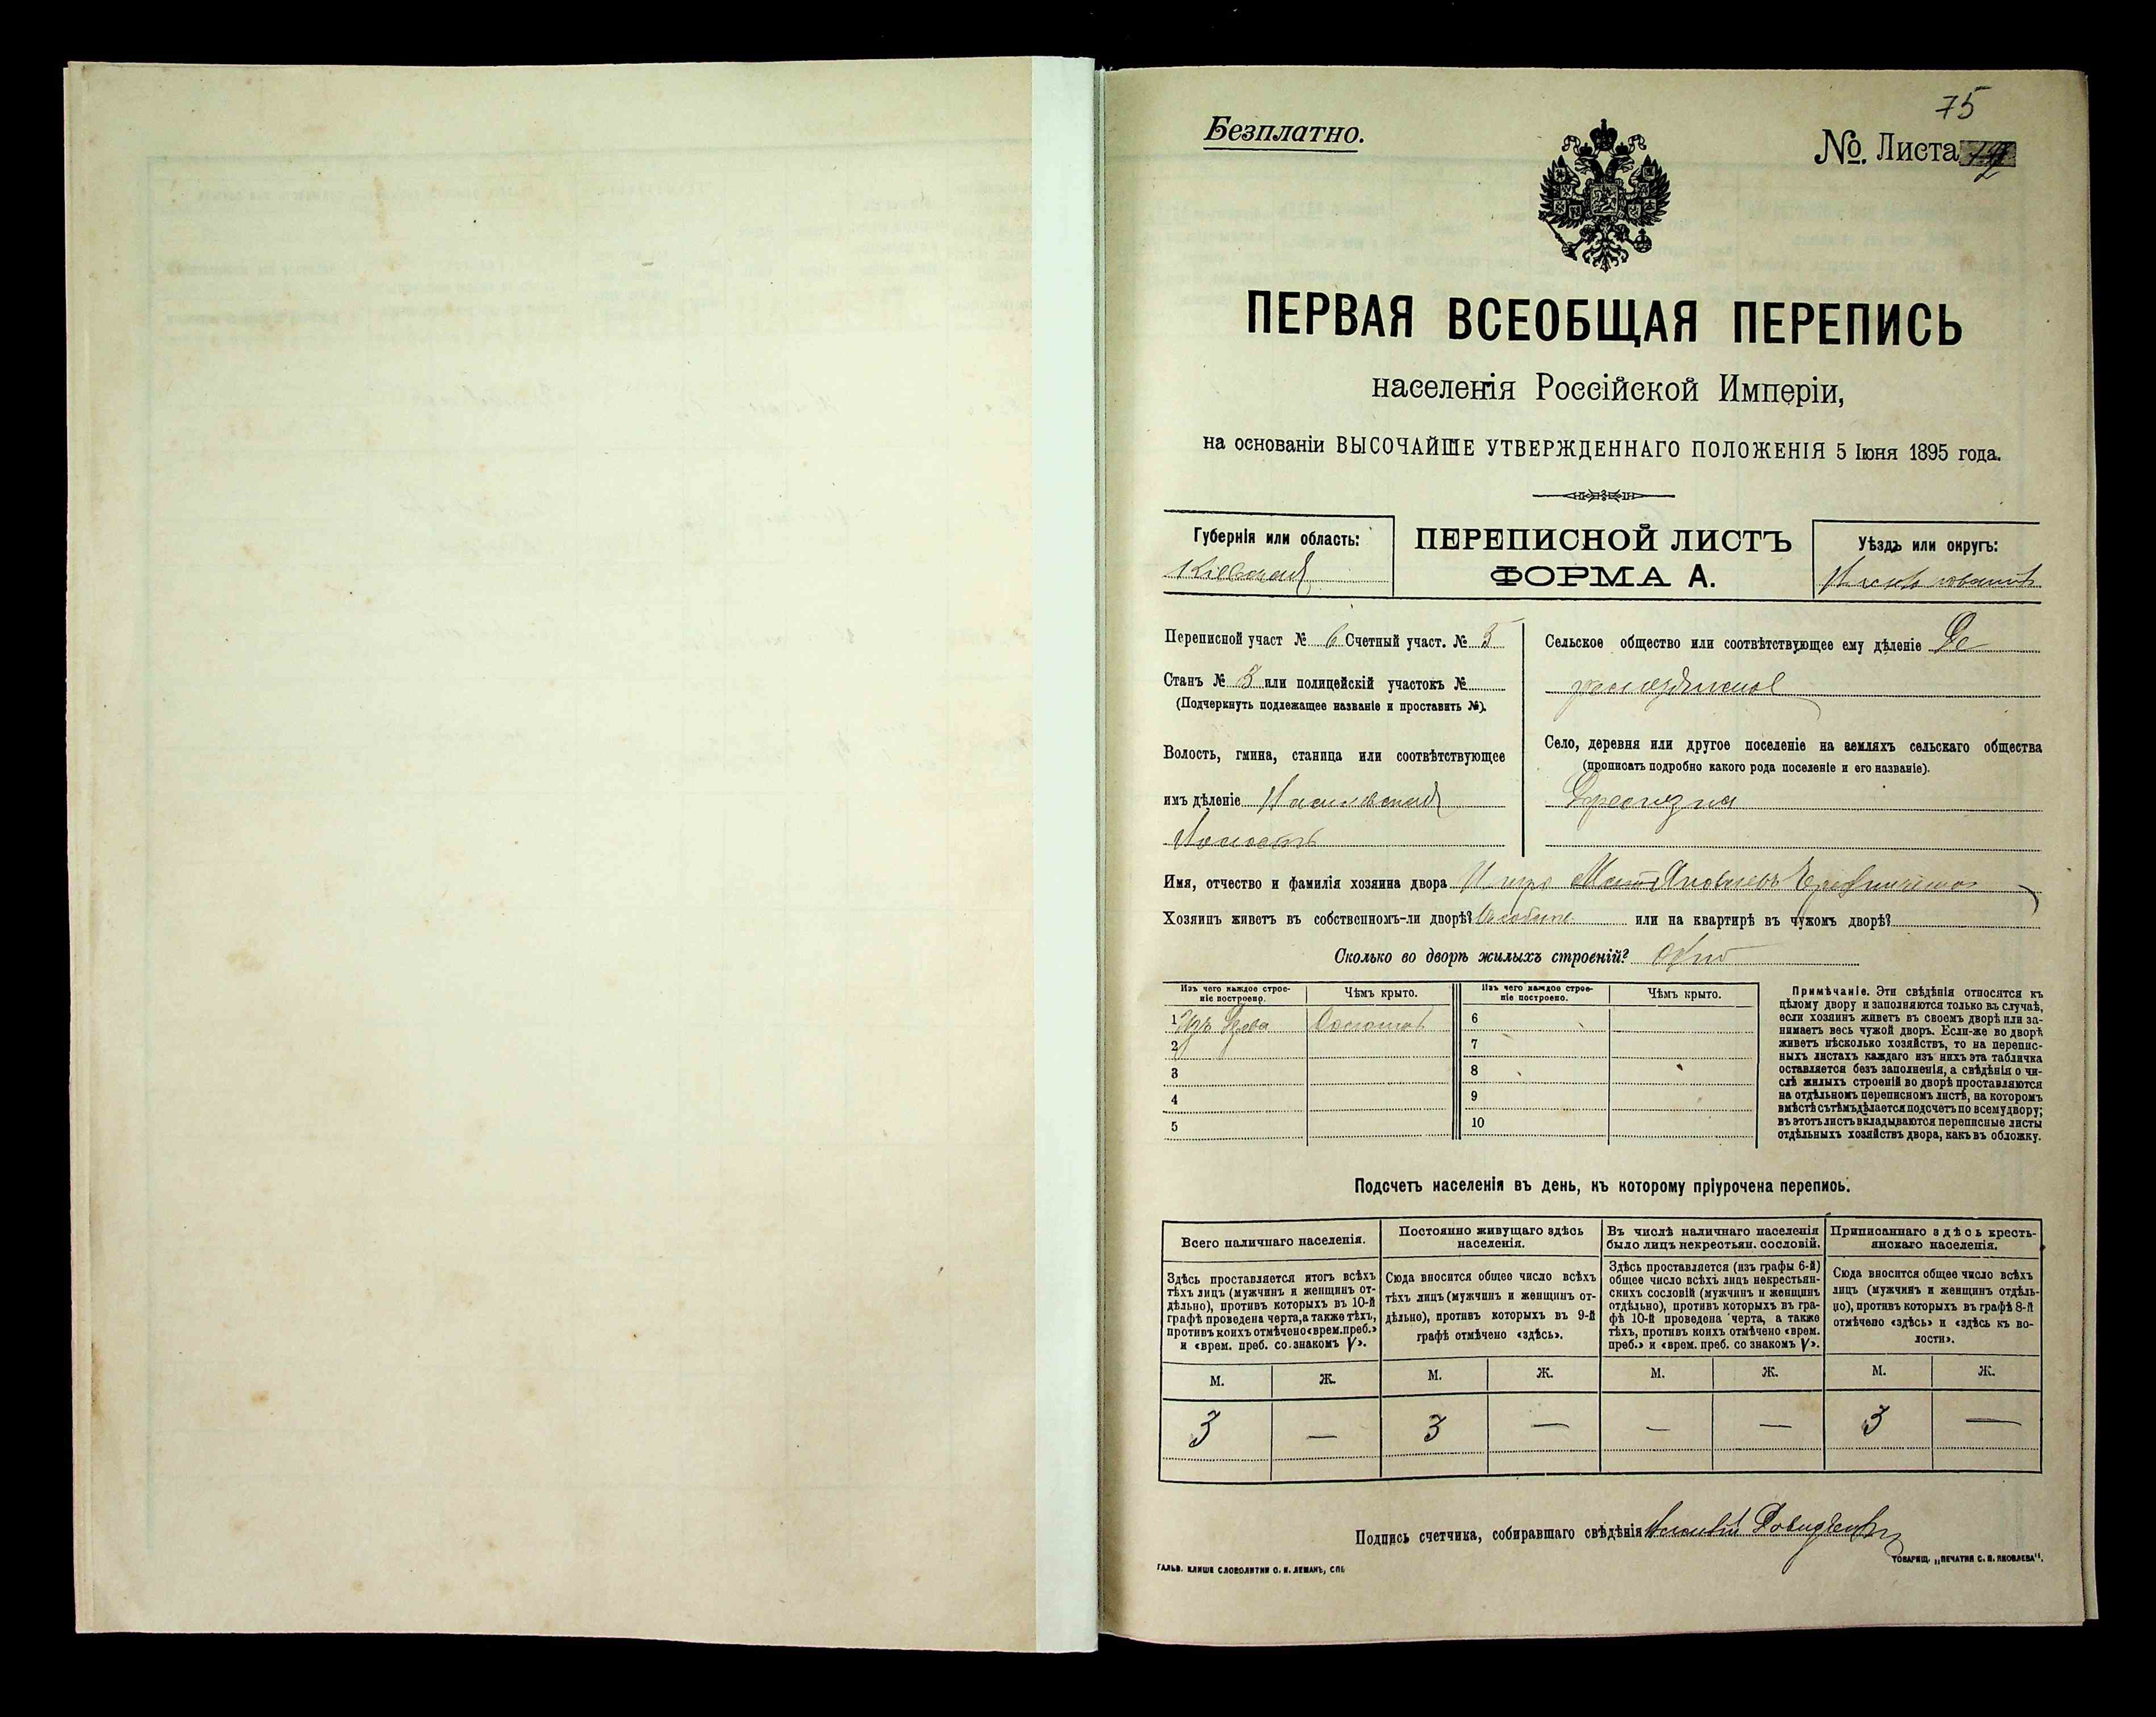 75
Безплатно.
№. Листа
ПЕРВАЯ ВСЕОБЩАЯ ПЕРЕПИСЬ
населенія Россійской Имперіи,
на основаніи ВЫСОЧАЙШЕ УТВЕРЖДЕННАГО ПОЛОЖЕНІЯ 5 Іюня 1895 года.
Губернія или область:
Кіевская
ПЕРЕПИСНОЙ ЛИСТЪ
ФОРМА А.
Уѣздъ или округъ:
Переписной участ № 6 Счетный участ. № 3
Станъ № 3 или полицейскій участокъ №
(Подчеркнуть подлежащее названіе и проставить №).
Волость, гмина, станица или соотвѣтствующее
имъ дѣленіе
Волость
Сельское общество или соотвѣтствующее ему дѣленіе
Село, деревня или другое поселеніе на земляхъ сельскаго общества
(прописать подробно какого рода поселеніе и его названіе).
Имя, отчество и фамилія хозяина двора Яковлевъ
Хозяинъ живетъ въ собственномъ-ли дворѣ? или на квартирѣ въ чужомъ дворѣ?
Сколько во дворѣ жилыхъ строеній? одно
Изъ чего каждое строе-
ніе построено.
Чѣмъ крыто.
Изъ чего каждое строе-
ніе построено.
Чѣмъ крыто.
1 Изъ дрова Соломой
2
3
4
5
6
7
8
9
10
Примѣчаніе. Эти свѣдѣнія относятся къ
цѣлому двору и заполняются только въ случаѣ,
если хозяинъ живетъ въ своемъ дворѣ или за-
нимаетъ весь чужой дворъ. Если-же во дворѣ
живетъ нѣсколько хозяйствъ, то на перепис-
ныхъ листахъ каждаго изъ нихъ эта табличка
оставляется безъ заполненія, а свѣдѣнія о чи-
слѣ жилыхъ строеній во дворѣ проставляются
на отдѣльномъ переписномъ листѣ, на которомъ
вмѣстѣ съ тѣмъ дѣлается подсчетъ по всему двору;
въ этотъ листъ вкладываются переписные листы
отдѣльныхъ хозяйствъ двора, какъ въ обложку.
Подсчетъ населенія въ день, къ которому пріурочена перепись.
Всего наличнаго населенія.
Здѣсь проставляется итогъ всѣхъ
тѣхъ лицъ (мужчинъ и женщинъ от-
дѣльно), противъ которыхъ въ 10-й
графѣ проведена черта, а также тѣхъ,
противъ коихъ отмѣчено «врем. преб.»
и «врем. преб. со знакомъ V».
Постоянно живущаго здѣсь
населенія.
Сюда вносится общее число всѣхъ
тѣхъ лицъ (мужчинъ и женщинъ от-
дѣльно), противъ которыхъ въ 9-й
графѣ отмѣчено «здѣсь».
Въ числѣ наличнаго населенія
было лицъ некрестьян. сословій.
Здѣсь проставляется (изъ графы 6-й)
общее число всѣхъ лицъ некрестьян-
скихъ сословій (мужчинъ и женщинъ
отдѣльно), противъ которыхъ въ гра-
фѣ 10-й проведена черта, а также
тѣхъ, противъ коихъ отмѣчено «врем.
преб.» и «врем. преб. со знакомъ V».
Приписаннаго здѣсь кресть-
янскаго населенія.
Сюда вносится общее число всѣхъ
лицъ (мужчинъ и женщинъ отдѣль-
но), противъ которыхъ въ графѣ 8-й
отмѣчено «здѣсь» и «здѣсь къ во-
лости».
М. Ж. М. Ж. М. Ж. М. Ж.
3 — 3 — — — 3 —
Подпись счетчика, собиравшаго свѣдѣнія
ГАЛЬВ. КЛИШЕ СЛОВОЛИТНИ О. И. ЛЕМАНЪ, СПБ
ТОВАРИЩ. „ПЕЧАТНЯ С. П. ЯКОВЛЕВА".